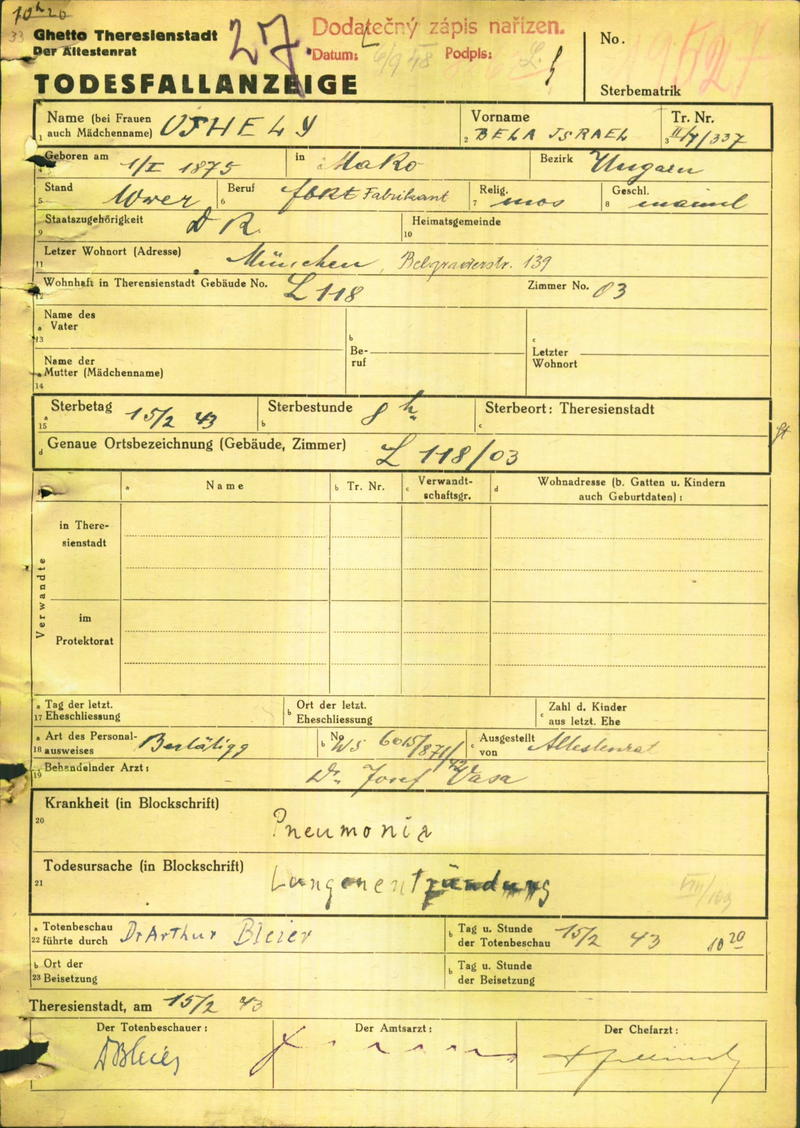 10 h 20
Ghetto Theresienstadt
Der Ältestenrat
27
Dodatečný zápis nařízen.
Datum: Podpis:
No.
Sterbematrik
TODESFALLANZEIGE
Name (bei Frauen auch Mädchenname) UJHELY
1
Vorname BELA ISRAEL
2
Tr. Nr. II/7/337
3
4 Geboren am 1/I 1875 in Mako Bezirk Ungarn
5 Stand Wwer 6 Beruf Fabrikant 7 Relig. mos 8 Geschl. männl
9 Staatszugehörigkeit D R. 10 Heimatsgemeinde
11 Letzer Wohnort (Adresse) München, Belgraderstr. 139
12 Wohnhaft in Theresienstadt Gebäude No. L 118 Zimmer No. 03
13 a Name des Vater
14 a Name der Mutter (Mädchenname)
b Beruf
c Letzter Wohnort
15 a Sterbetag 15/2 43 b Sterbestunde 8 h c Sterbeort: Theresienstadt
d Genaue Ortsbezeichnung (Gebäude, Zimmer) L 118/03
a Name b Tr. Nr. c Verwandt-schaftsgr. d Wohnadresse (b. Gatten u. Kindern auch Geburtdaten):
Verwandte
in There-
sienstadt
im
Protektorat
17 a Tag der letzt. Eheschliessung b Ort der letzt. Eheschliessung c Zahl d. Kinder aus letzt. Ehe
18 a Art des Personal-ausweises b No WS 6015/871/42 c Ausgestellt von Ältestenrat
19 Behandelnder Arzt: Dr. Josef Vasa
Krankheit (in Blockschrift)
20 Pneumonia
Todesursache (in Blockschrift)
21 Lungenentzündung
22 a Totenbeschau führte durch Dr Arthur Bleier b Tag u. Stunde der Totenbeschau 15/2 43 10 20
23 b Ort der Beisetzung b Tag u. Stunde der Beisetzung
Theresienstadt, am 15/2 43
Der Totenbeschauer: Der Amtsarzt: Der Chefarzt:
DBleier